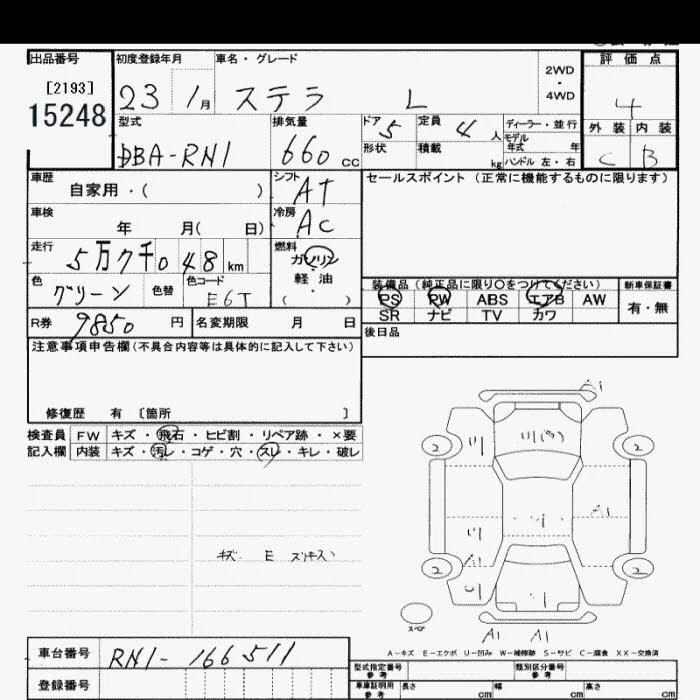 出品番号 初度登録年月 車名・グレード 評価点
[2193] 23 1月 ステラ L 2WD・4WD 4
15248
型式 排気量 ドア 5 定員 4人 ディーラー・並行 外装 内装
DBA-RN1 660cc 形状 積載 kg モデル年式 年 ハンドル 左・右 C B
車歴 自家用・( ) シフト AT セールスポイント (正常に機能するものに限ります)
車検 年 月( 日) 冷房 AC
走行 5万7千048km 燃料 ガソリン・軽油 ( )
色 グリーン 色替 色コード E6T 装備品(純正品に限り○をつけてください) 新車保証書
PS PW ABS エアB AW 有・無
SR ナビ TV カワ
R券 9850円 名変期限 月 日 後日品
注意事項申告欄(不具合内容等は具体的に記入して下さい)
修復歴 有 〔箇所 〕
検査員 FW キズ・飛石・ヒビ割・リペア跡・×要
記入欄 内装 キズ・汚レ・コゲ・穴・スレ・キレ・破レ
キズ. E
A1
2 2
A1
A1
2 2
スペア
A1 A1
A-キズ E-エクボ U-凹み W-補修跡 S-サビ C-腐食 XX-交換済
車台番号 RN1-166511 型式指定番号 参考 類別区分番号 参考
登録番号 車庫証明用 参考 長さ cm 幅 cm 高さ cm